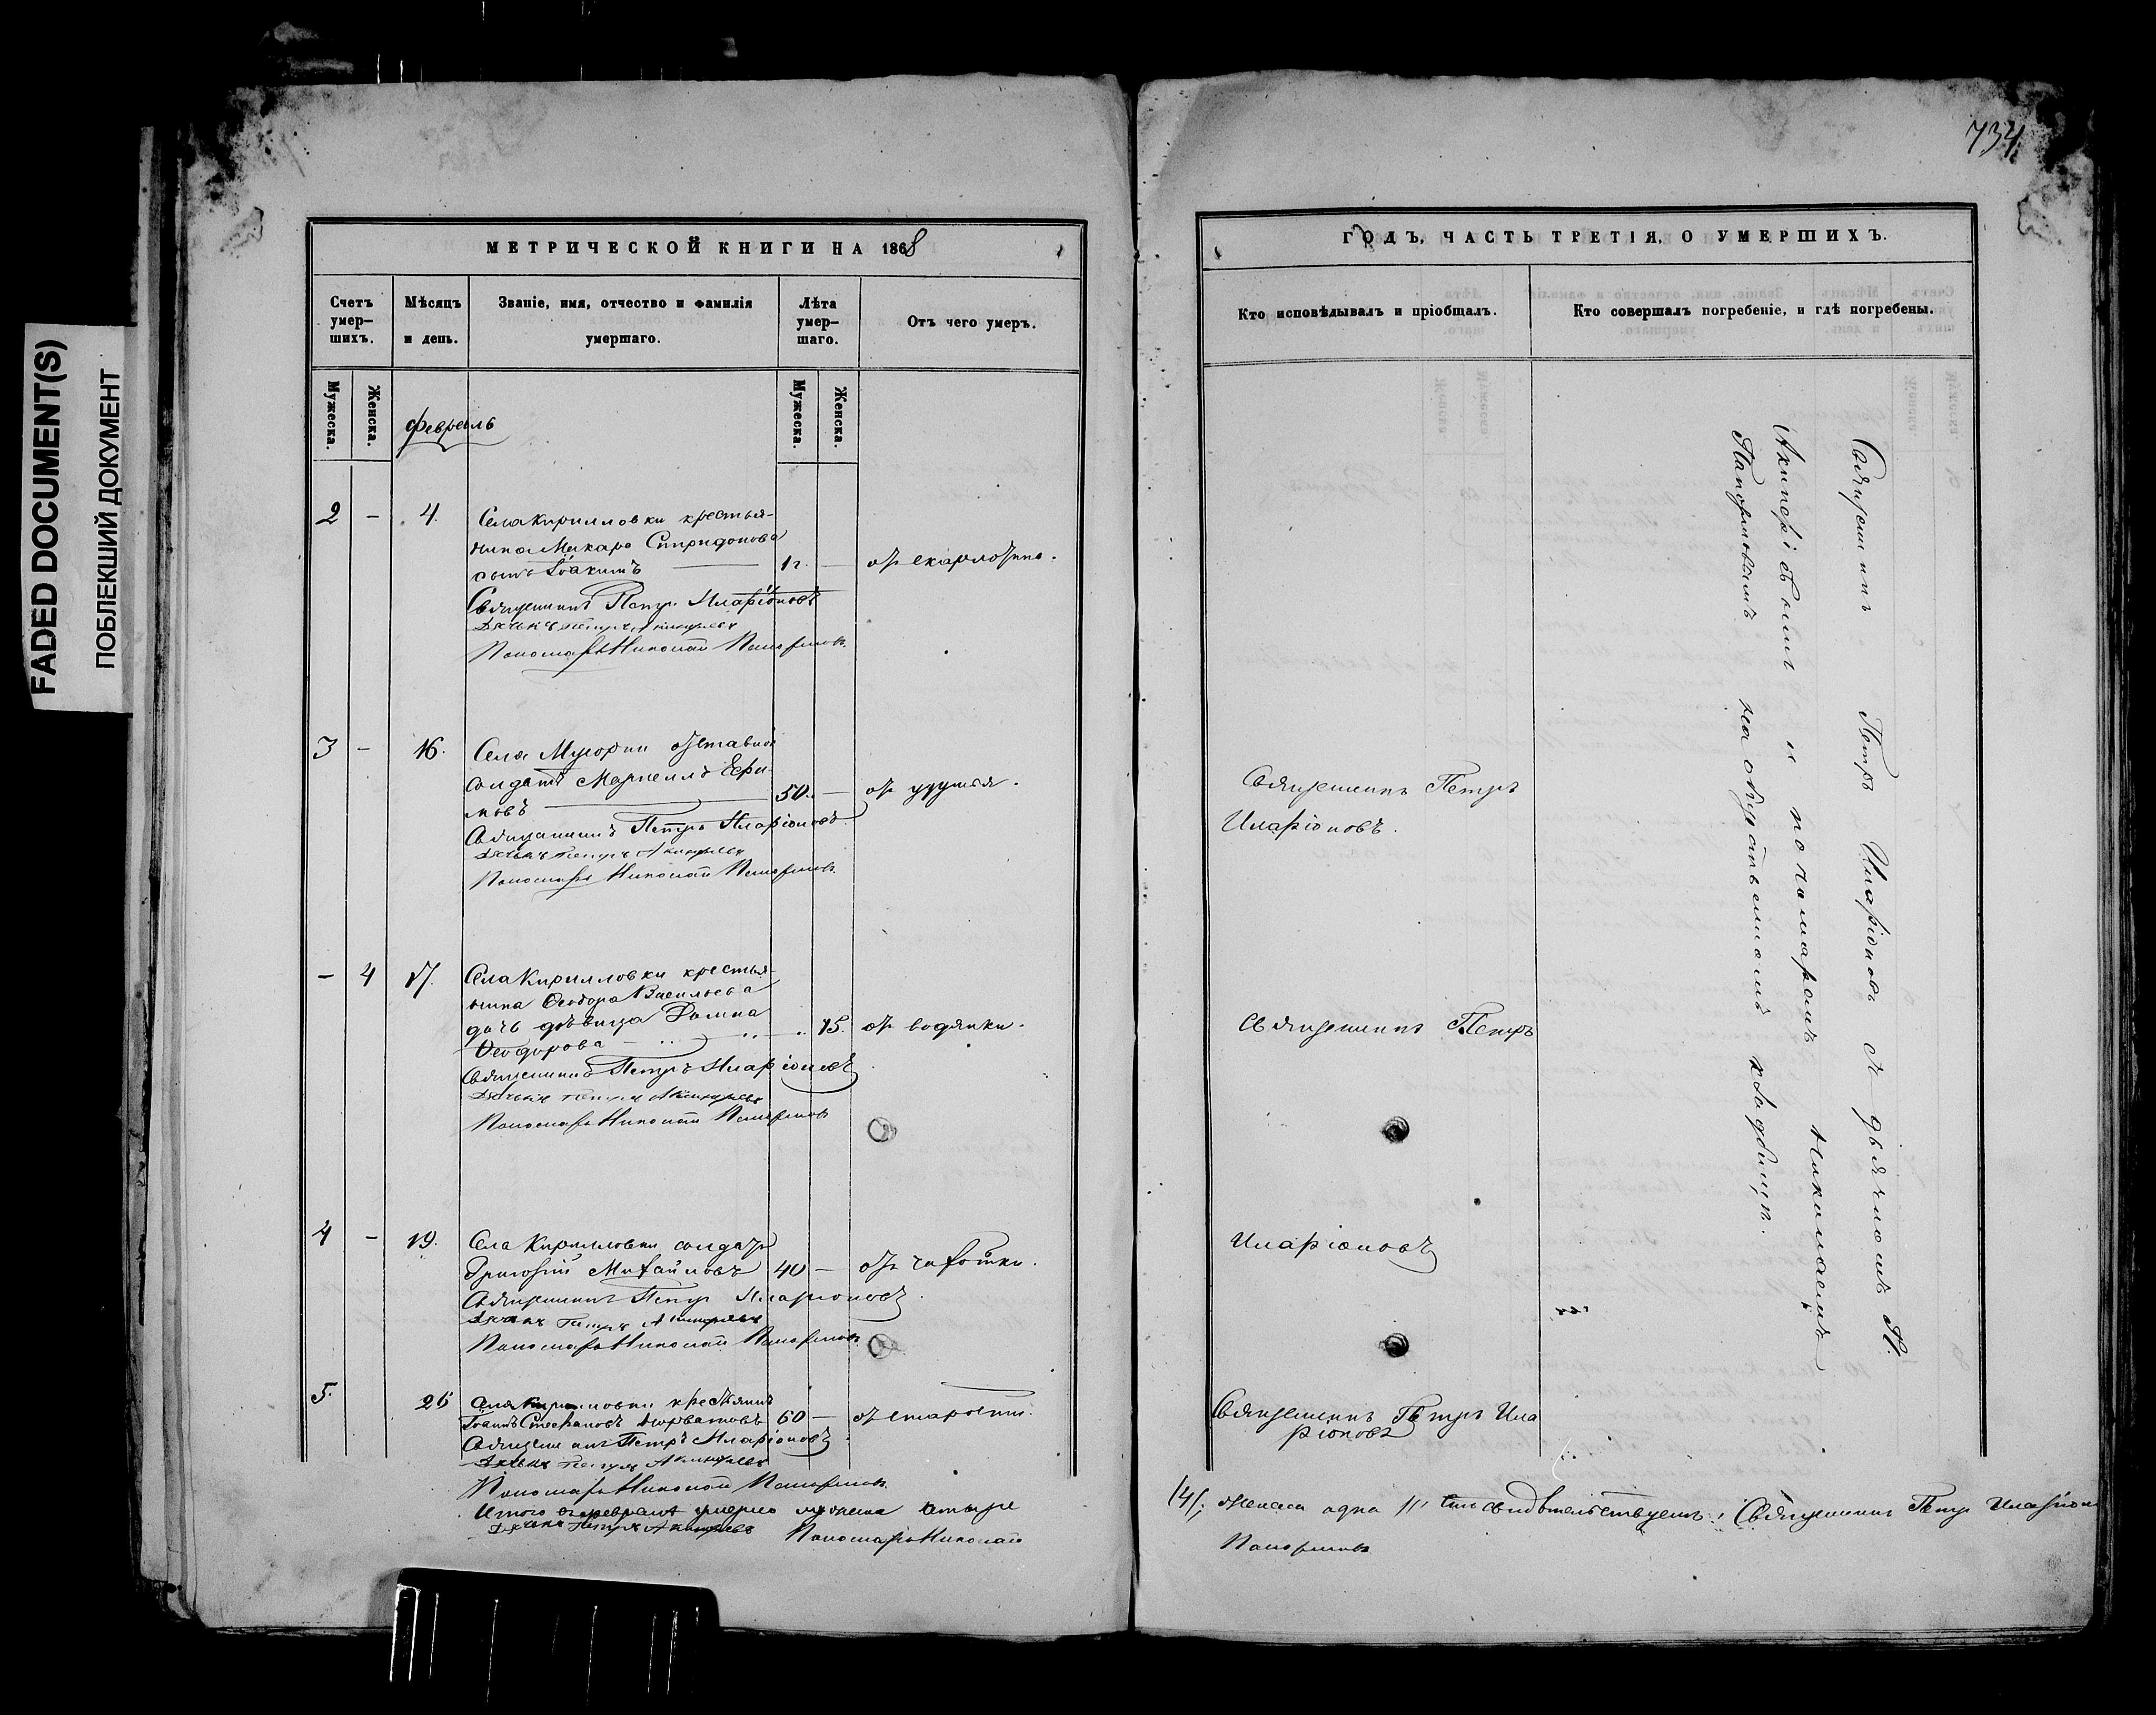 FADED DOCUMENT(S)
ПОБЛЕКШИЙ ДОКУМЕНТ
МЕТРИЧЕСКОЙ КНИГИ НА 1868
Счетъ умер-шихъ.
Мѣсяцъ и день.
Званіе, имя, отчество и фамилія умершаго.
Лѣта умер-шаго.
Отъ чего умеръ.
Мужеска.
Женска.
Мужеска.
Женска.
февраль
2 - 4. Села Кирилловки крестья-
нина Макара Спиридонова
сынъ Іоакимъ 1 г. — отъ скарлатины.
Священникъ Петръ Иларіоновъ
Дьячекъ Петръ
Пономарь Николай Панормовъ
3 - 16. Села отставной
солдатъ Маркеллъ Ефи-
мовъ 50. — отъ удушья.
Священникъ Петръ Иларіоновъ
Дьячекъ Петръ
Пономарь Николай Панормовъ
- 4 17. Села Кирилловки крестья-
нина Ѳеодора Васильева
дочь дѣвица Домна
Ѳеодорова 15. отъ водянки.
Священникъ Петръ Иларіоновъ
Дьячекъ Петръ
Пономарь Николай Панормовъ
4 - 19. Села Кирилловки солдатъ
Григорій Михайловъ 40 — отъ чахотки.
Священникъ Петръ Иларіоновъ
Дьячекъ Петръ
Пономарь Николай Панормовъ
5. 26 Села Кирилловки крестьянинъ
Іоаннъ Стефановъ 60 — отъ старости.
Священникъ Петръ Иларіоновъ
Дьячекъ Петръ
Пономарь Николай Панормовъ
Итого въ февралѣ умерло мужеска четыре
Дьячекъ Петръ Пономарь Николай
734
ГОДЪ, ЧАСТЬ ТРЕТІЯ, О УМЕРШИХЪ.
Кто исповѣдывалъ и пріобщалъ.
Кто совершалъ погребеніе, и гдѣ погребены.
Священникъ Петръ
Иларіоновъ.
Священникъ Петръ
Иларіоновъ
Священникъ Петръ Ила
ріоновъ
Священникъ Петръ Иларіоновъ съ дьячкомъ П.
и пономаремъ Николаемъ
Панормовымъ на общественномъ кладбищѣ.
/4/, женска одна /1/ свидѣтельствуемъ: Священникъ Петръ Иларіоновъ
Панормовъ